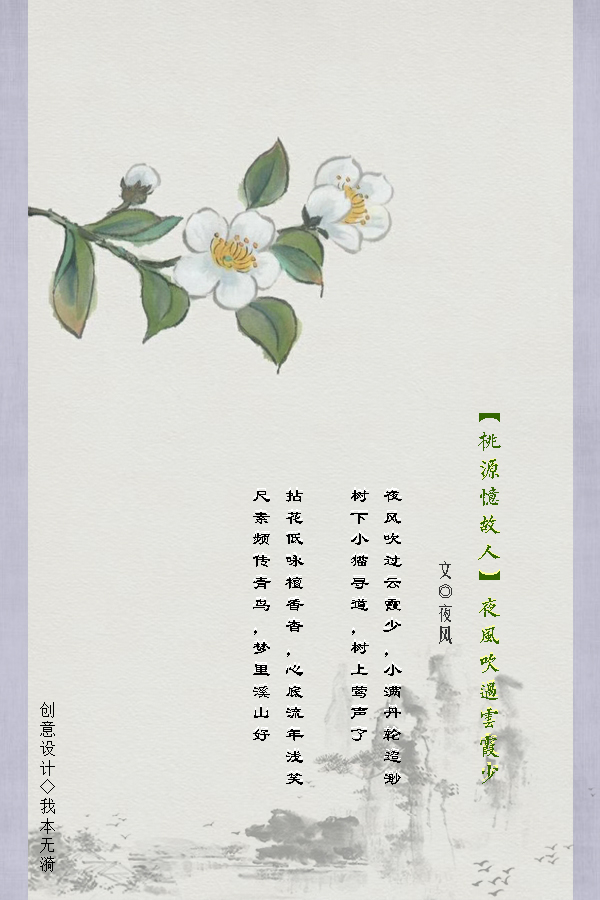 【桃源憶故人】夜風吹過雲霞少
文◎夜风
夜风吹过云霞少，小满丹轮迢渺
树下小猫寻道，树上莺声了
拈花低咏檀香杳，心底流年浅笑
尺素频传青鸟，梦里溪山好
创意设计◇我本无漪